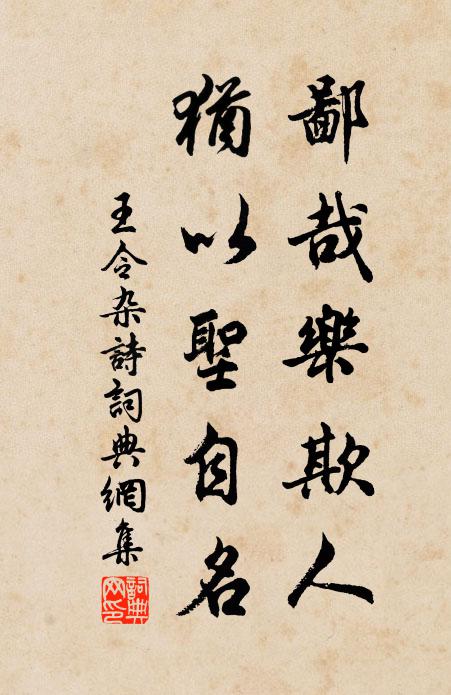 鄙哉樂欺人
猶以聖自名
王令杂詩詞典網集
詞典
网印